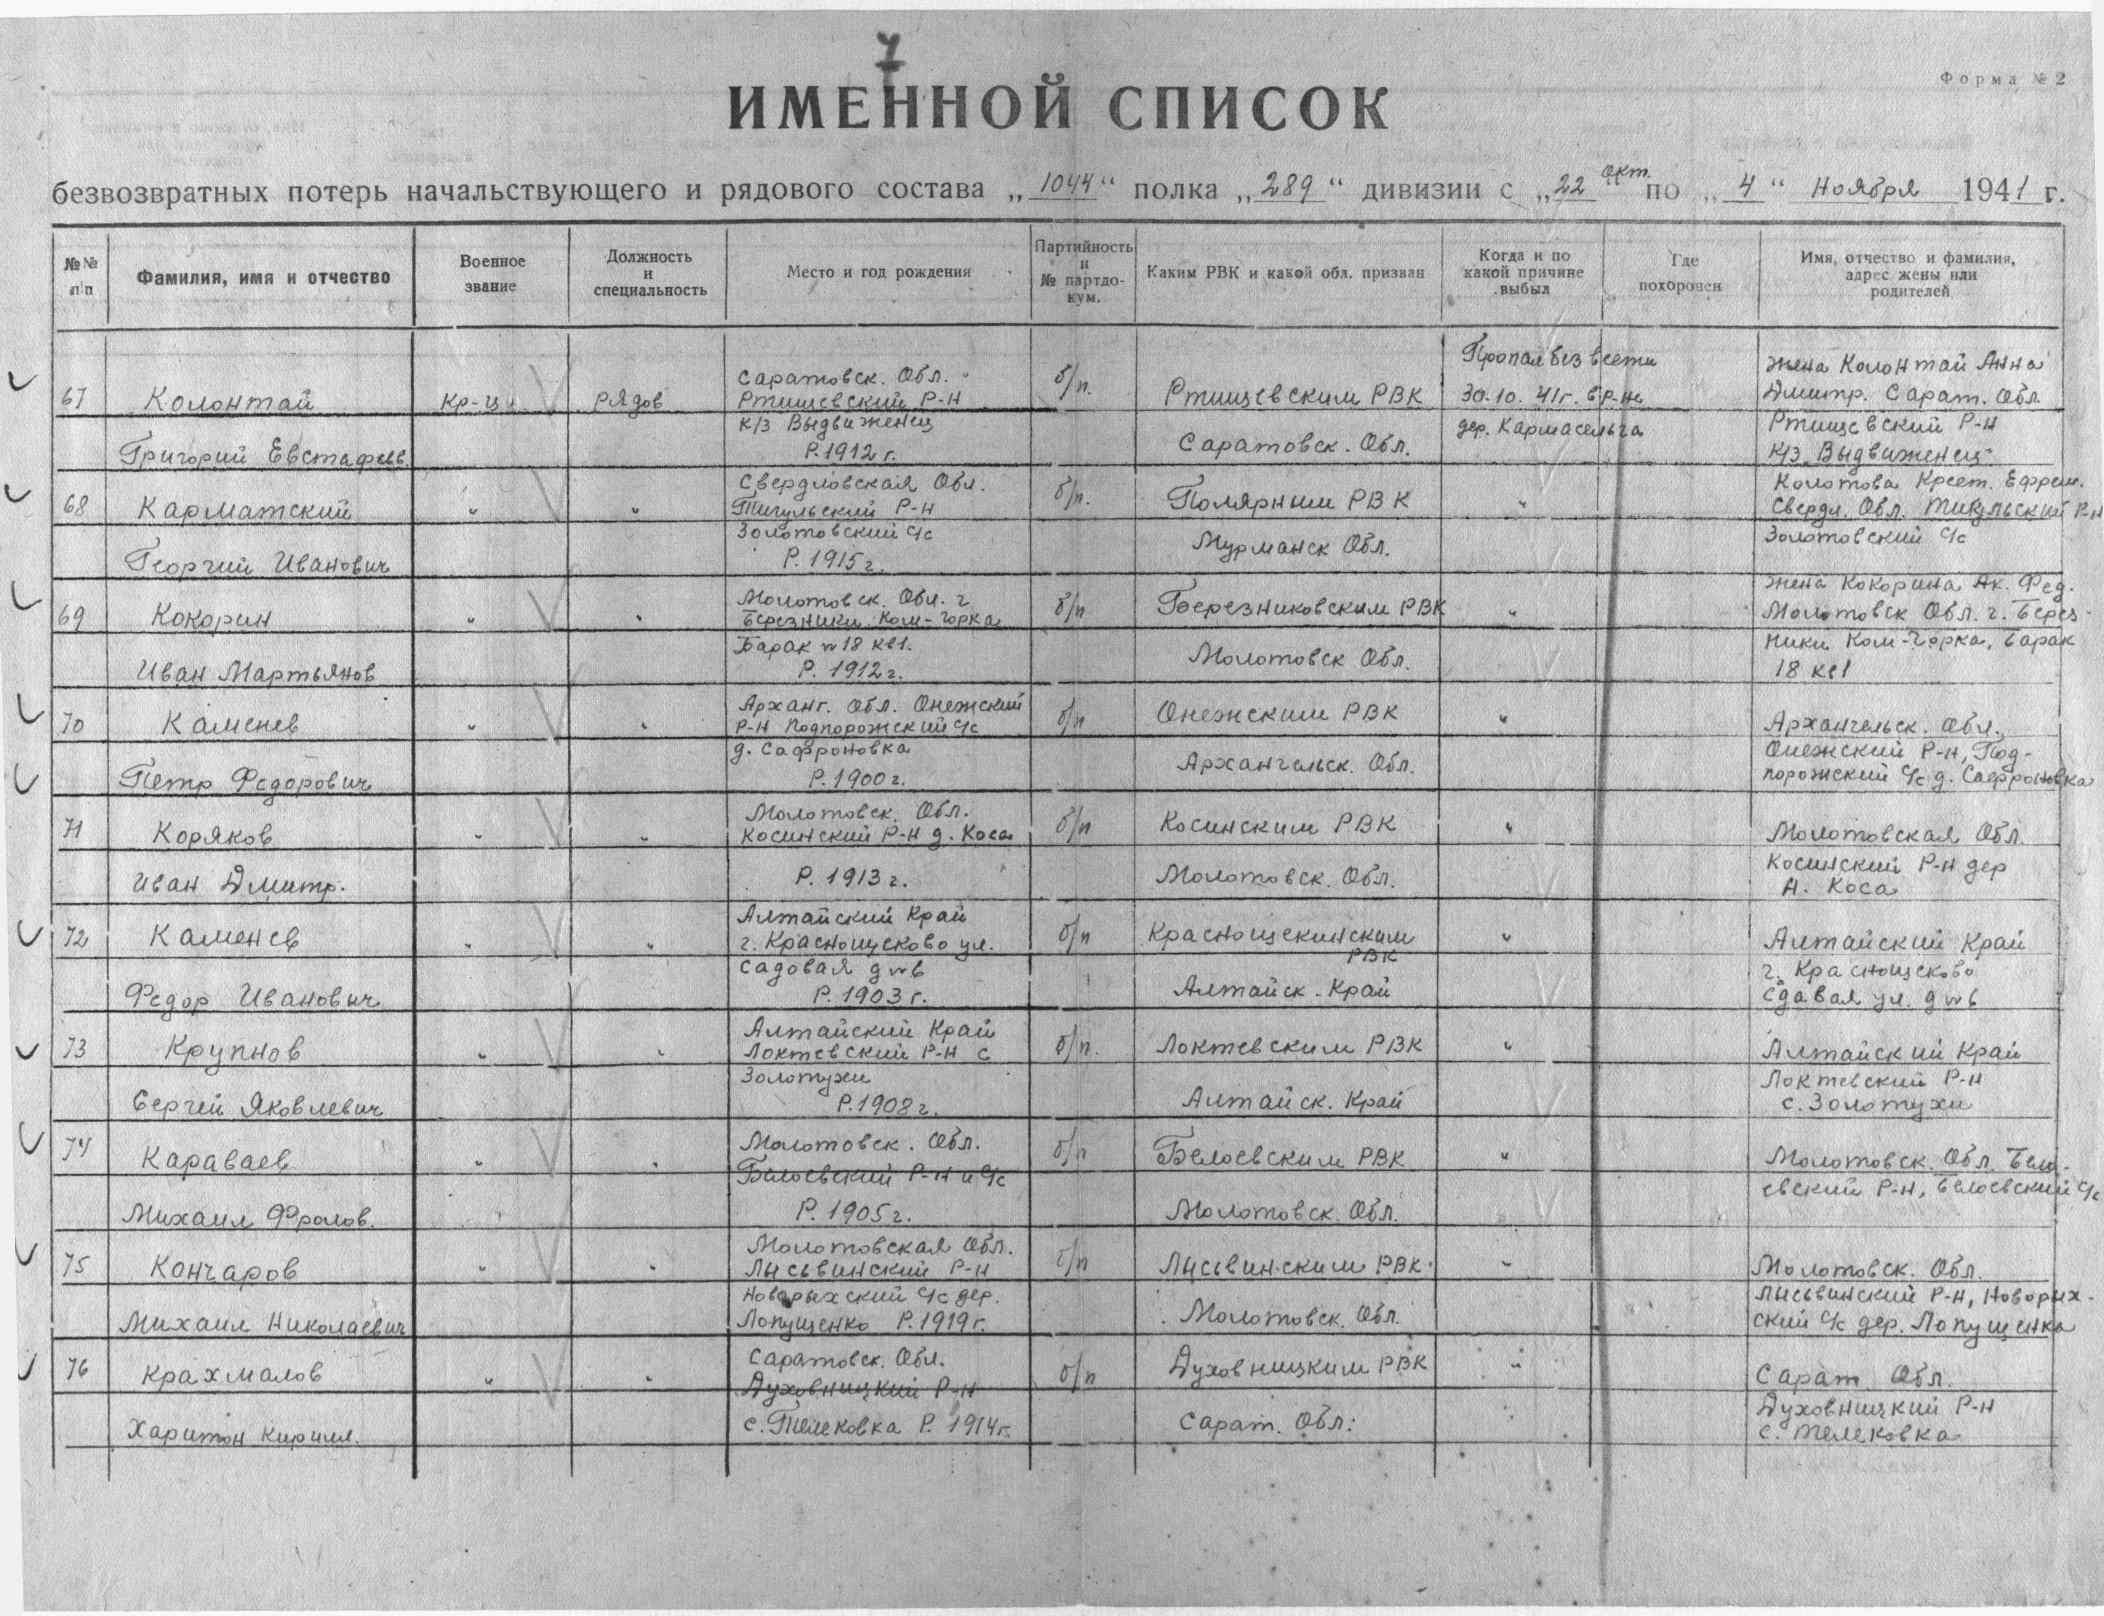 7
Форма № 2
ИМЕННОЙ СПИСОК
безвозвратных потерь начальствующего и рядового состава „1044“ полка „289“ дивизии с „22“ окт. по „4“ ноября 1941 г.
№№ п/п
Фамилия, имя и отчество
Военное звание
Должность и специальность
Место и год рождения
Партийность и № партдокум.
Каким РВК и какой обл. призван
Когда и по какой причине выбыл
Где похоронен
Имя, отчество и фамилия, адрес жены или родителей
67
Колонтай
Григорий Евстафьев.
кр-ц
рядов
Саратовск. Обл.
Ртищевский Р-Н
к/з Выдвиженец
Р. 1912 г.
б/п.
Ртищевским РВК
Саратовск. Обл.
Пропал без вести
30.10.41г. в р-не
дер. Кармасельга
жена Колонтай Анна
Дмитр. Сарат. Обл
Ртищевский Р-Н
К/з Выдвиженец
68
Карматский
Георгий Иванович
"
"
Свердловская Обл.
Тигульский Р-Н
Золотовский с/с
Р. 1915 г.
б/п.
Полярным РВК
Мурманск Обл.
"
Колотова Крест. Ефрем.
Свердл. Обл. Р-Н
Золотовский с/с
69
Кокорин
Иван Мартьянов
"
"
Молотовск. Обл. г
Березники Ком-Горка
Барак №18 кв1.
Р. 1912 г.
б/п
Березниковским РВК
Молотовск Обл.
"
жена Кокорина Ак. Фед.
Молотовск Обл. г. Берез-
ники Ком-Горка, барак
18 кв1
70
Каменев
Петр Федорович
"
"
Арханг. Обл. Онежский
Р-Н Подпорожский с/с
д. Сафроновка
Р. 1900 г.
б/п
Онежским РВК
Архангельск. Обл.
"
Архангельск. Обл.
Онежский Р-Н, Под-
порожский с/с д. Сафроновка
71
Коряков
Иван Дмитр.
"
"
Молотовск. Обл.
Косинский Р-Н д. Коса
Р. 1913 г.
б/п
Косинским РВК
Молотовск. Обл.
"
Молотовская Обл.
Косинский Р-Н дер
Н. Коса
72
Каменев
Федор Иванович
"
"
Алтайский Край
г. Краснощеково ул.
Садовая д №6
Р. 1903 г.
б/п
Краснощекинским
РВК
Алтайск. Край
"
Алтайский Край
г. Краснощеково
Сдавая ул. д №6
73
Крупнов
Сергей Яковлевич
"
"
Алтайский Край
Локтевский Р-Н с
Золотухи
Р. 1908 г.
б/п.
Локтевским РВК
Алтайск. Край
"
Алтайский Край
Локтевский Р-Н
с. Золотухи
74
Караваев
Михаил Фролов.
"
"
Молотовск. Обл.
Белоевский Р-Н и с/с
Р. 1905 г.
б/п
Белоевским РВК
Молотовск. Обл.
"
Молотовск. Обл. Бело-
евский Р-Н, Белоевский с/с
75
Кончаров
Михаил Николаевич
"
"
Молотовская Обл.
Лысьвинский Р-Н
Новорыхский с/с дер.
Лопущенко Р. 1919 г.
б/п
Лысьвинским РВК
Молотовск. Обл.
"
Молотовск. Обл.
Лысьвинский Р-Н, Новорих-
ский с/с дер. Лопущенка
76
Крахмалов
Харитон Кирил.
"
"
Саратовск. Обл.
Духовницкий Р-Н
с. Телековка Р. 1914 г.
б/п
Духовницким РВК
Сарат. Обл.
"
Сарат. Обл.
Духовницкий Р-Н
с. Телековка